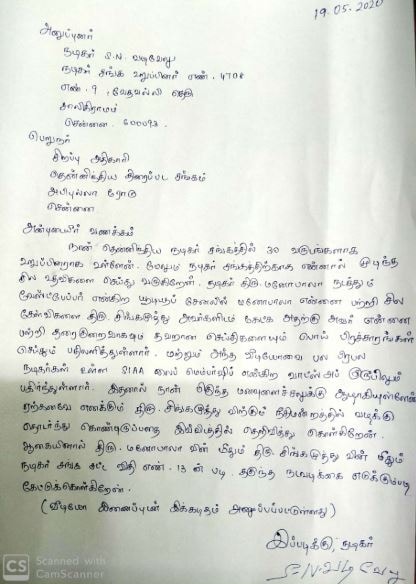 19.05.2020
அனுப்புனர்
நடிகர் S.N. வடிவேலு
நடிகர் சங்க உறுப்பினர் எண். 4708
எண். 9, வேதவல்லி தெரு
சாலிகிராமம்
சென்னை. 600093.
பெறுநர்
சிறப்பு அதிகாரி
தென்னிந்திய திரைப்பட சங்கம்
அபிபுல்லா ரோடு
சென்னை
அன்புடையீர் வணக்கம்
நான் தென்னிந்திய நடிகர் சங்கத்தில் 30 வருடங்களாக
உறுப்பினராக உள்ளேன். மேலும் நடிகர் சங்கத்திற்காக என்னால் முடிந்த
சில உதவிகளை செய்து வருகிறேன். நடிகர் திரு. மனோபாலா நடத்தும்
வேஸ்ட்பேப்பர் என்கிற யூடியுப் சேனலில் மனோபாலா என்னை பற்றி சில
கேள்விகளை திரு. சிங்கமுத்து அவர்களிடம் கேட்க அதற்கு அவர் என்னை
பற்றி தரைகுறைவாகவும் தவறான செய்திகளையும் பொய் பிரச்சாரங்கள்
செய்தும் பதிவளித்துள்ளார். மற்றும் அந்த வீடியோவை பல பிரபல
நடிகர்கள் உள்ள SIAA லைப் மெம்பர்ஷிப் என்கிற வாட்ஸ்அப் குரூப்பிலும்
பதிர்ந்துள்ளார். இதனால் நான் மிகுந்த மனஉளைச்சலுக்கு ஆழாகியுள்ளேன்
ஏற்கனவே எனக்கும் திரு. சிங்கமுத்து விற்கும் நீதிமன்றத்தில் வழக்கு
தொடர்ந்து கொண்டிருப்பதை இவ்விடத்தில் தெரிவித்து கொள்கிறேன்.
ஆகையினால் திரு. மனோபாலா வின் மீதும் திரு. சிங்கமுத்து வின் மீதும்
நடிகர் சங்க சட்ட விதி எண். 13 ன் படி. தகுந்த நடவடிக்கை எடுக்கும்படி
கேட்டுக்கொள்கிறேன்.
(வீடியோ இணைப்புடன் இக்கடிதம் அனுப்பப்பட்டுள்ளது)
இப்படிக்கு, நடிகர்
S.N. வடிவேலு
CS Scanned with
CamScanner